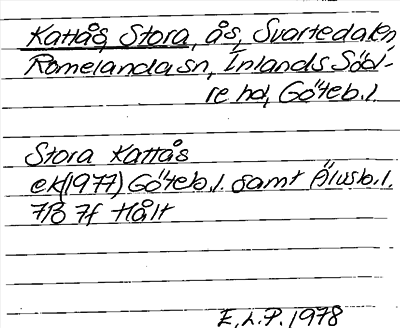 Kattås, Stora, ås, Svartedalen,
Romelanda sn, Inlands Södi-
re hd, Göteb. l.
Stora Kattås
ek (1977) Göteb. l. samt Älvsb. l.
7B 7f Hålt
E. L. P. 1978